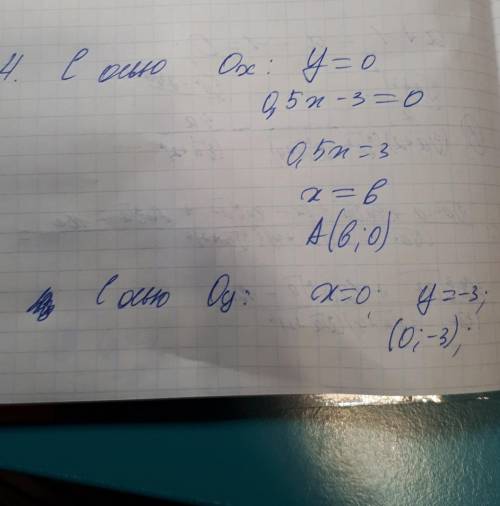 4. С осью Ox: y=0
0,5x-3=0
0,5x=3
x=6
A(6;0)
С осью Oy: x=0; y=-3;
(0;-3);